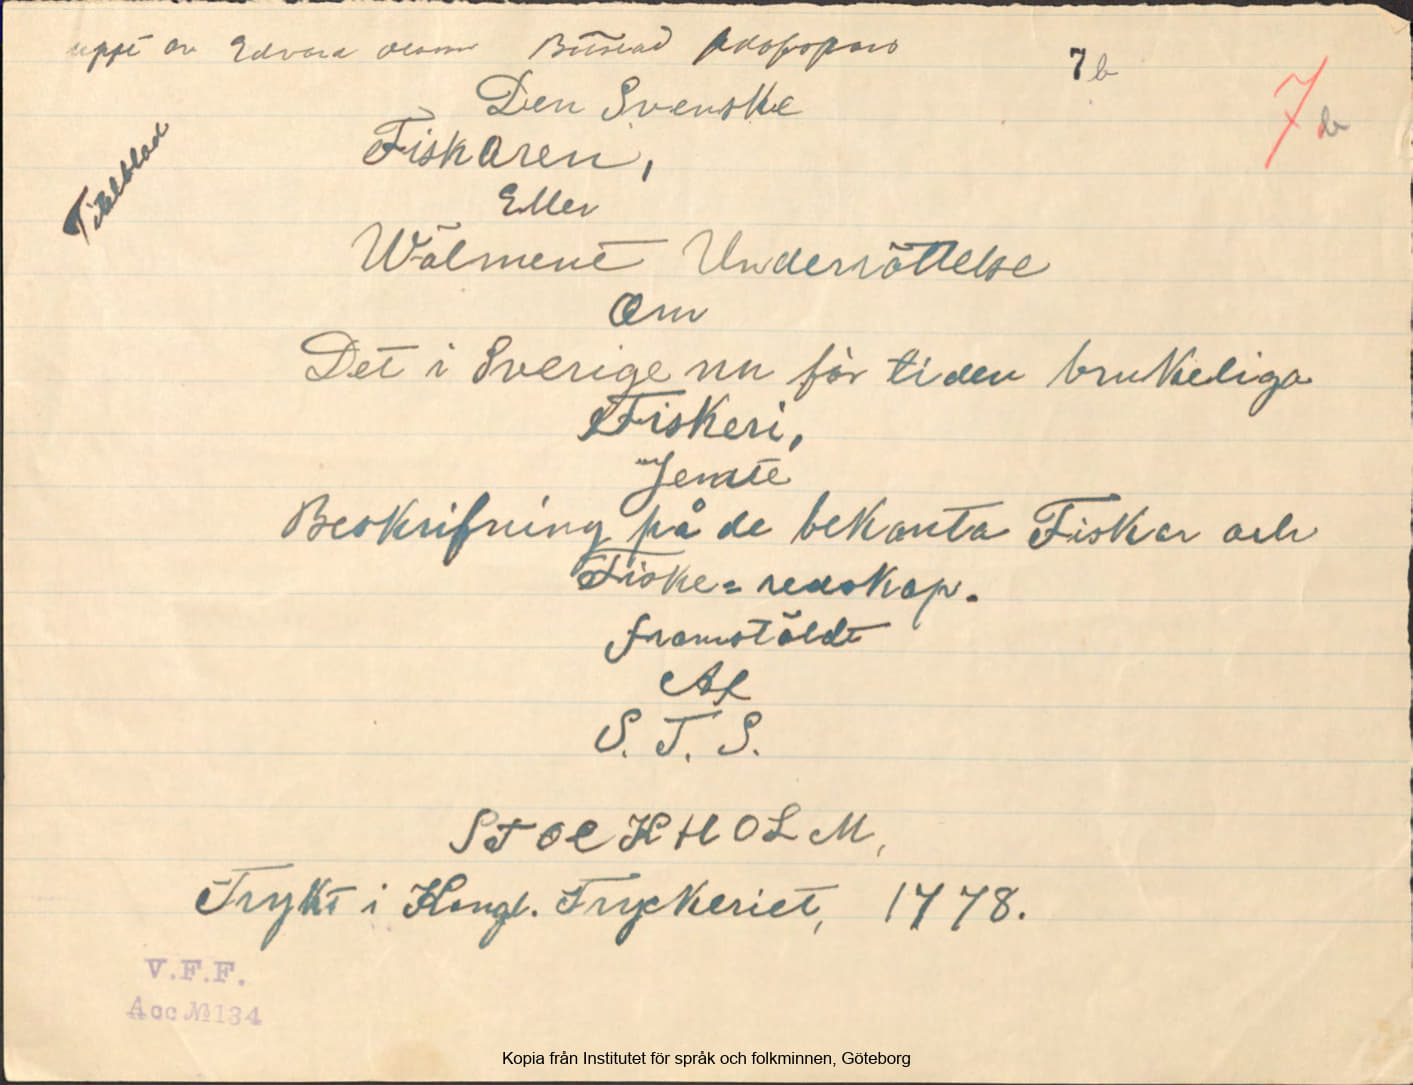 uppt av Edvard Olsson Båstad
7b
7b
Titelblad
Den Svenske
Fiskaren,
Eller
Wälment Underrättelse
Om
Det i Sverige nu för tiden brukeliga
Fiskeri,
Jemte
Beskrifning på de bekanta Fiskar och
Fiske=redskap.
framstäldt
Af
S. T. S.
STOCKHOLM,
Trykt i Kongl. Tryckeriet, 1778.
V.F.F.
Acc № 134
Kopia från Institutet för språk och folkminnen, Göteborg